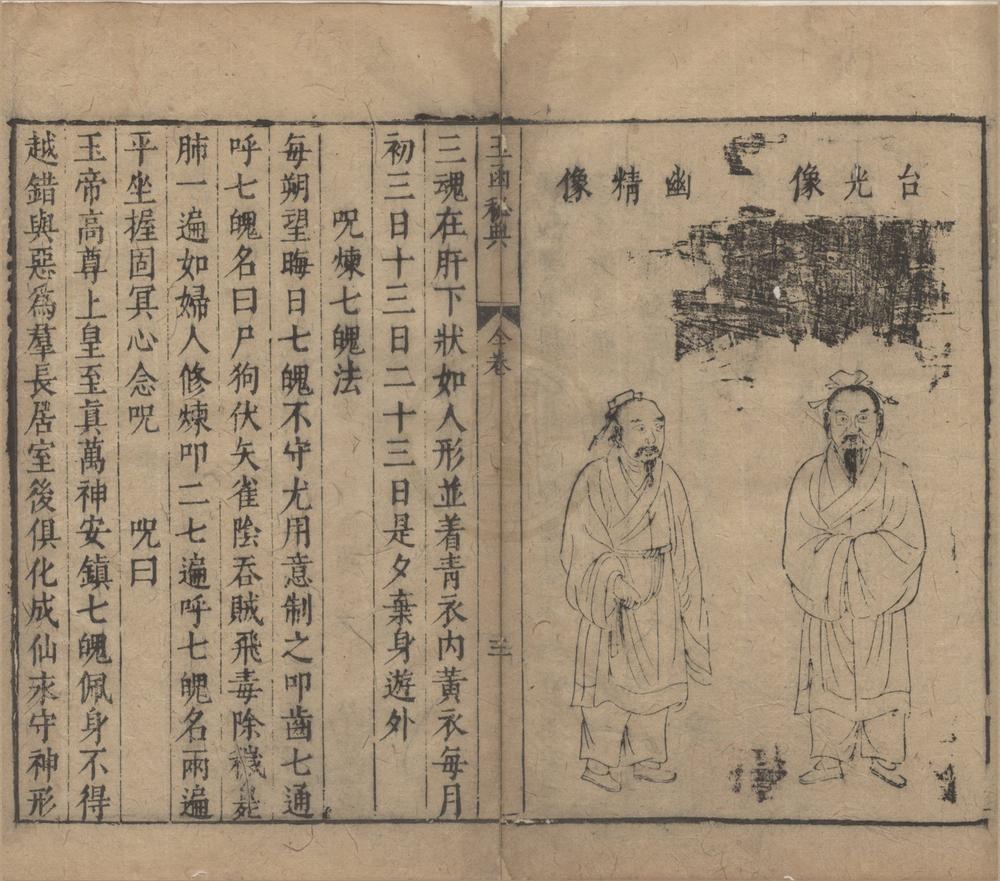 台光像
幽精像
玉函秘典
全卷
三
三魂在肝下狀如人形並着青衣内黃衣每月
初三日十三日二十三日是夕棄身遊外
呪煉七魄法
每朔望晦日七魄不守尤用意制之叩齒七通
呼七魄名曰尸狗伏矢雀陰吞賊飛毒除穢
肺一遍如婦人修煉叩二七遍呼七魄名兩遍
平坐握固冥心念呪 呪曰
玉帝高尊上皇至眞萬神安鎮七魄佩身不得
越錯與惡爲羣長居室後俱化成仙永守神形